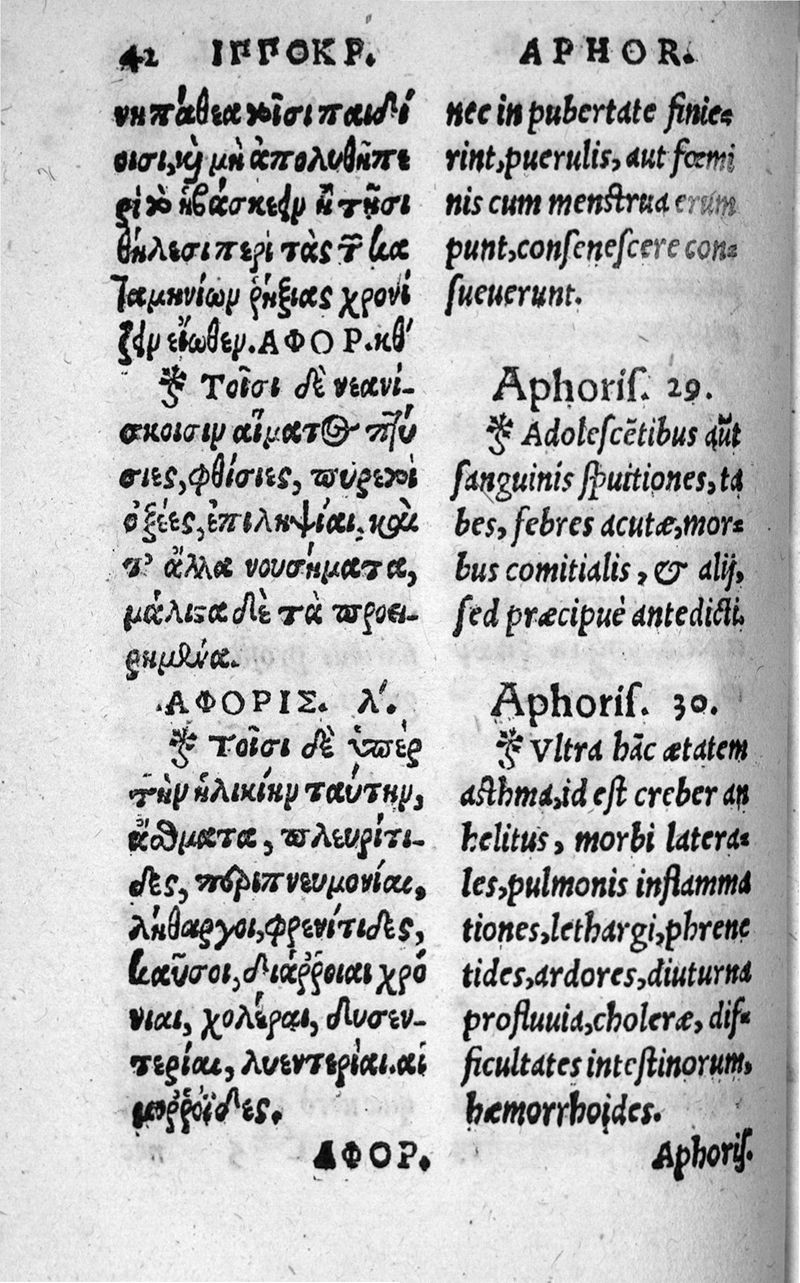 42 ΙΠΠΟΚΡ.
νηπάθεα τοῖσι παιδί
οισι, καὶ μὴ ἀπολυθῆ περ
ρὶ τὸ ἡβάσκειν ἢ τῇσι
θήλεσι περὶ τὰς τῶν κα
ταμηνίων ῥήξιας χρονί
ζειν εἴωθεν. ΑΦΟΡ. κθ´
Τοῖσι δὲ νεανί-
σκοισιν αἵματος πτύ
σιες, φθίσιες, πυρετοὶ
ὀξέες, ἐπιληψίαι, καὶ
τ᾽ ἄλλα νουσήματα,
μάλιστα δὲ τὰ προει-
ρημένα.
ΑΦΟΡΙΣ. λ´.
Τοῖσι δὲ ὑπὲρ
τὴν ἡλικίην ταύτην,
ἄσθματα, πλευρίτι-
δες, περιπνευμονίαι,
λήθαργοι, φρενίτιδες,
καῦσοι, διάῤῥοιαι χρό
νιαι, χολέραι, δυσεν-
τερίαι, λυεντερίαι. αἱ
μοῤῥοΐδες.
ΑΦΟΡ.
APHOR.
nec in pubertate finie-
rint, puerulis, aut fœmi
nis cum menstrua erum
punt, conſeneſcere con-
ſueuerunt.
Aphoriſ. 29.
Adoleſcẽtibus aũt
ſanguinis ſpuitiones, ta
bes, febres acutæ, mor-
bus comitialis, & alij,
ſed præcipuè antedicti.
Aphoriſ. 30.
Vltra hãc ætatem
asthma, id eſt creber an
helitus, morbi latera-
les, pulmonis inflamma
tiones, lethargi, phrene
tides, ardores, diuturna
profluuia, choleræ, dif-
ficultates inteſtinorum,
hæmorrhoides.
Aphoriſ.